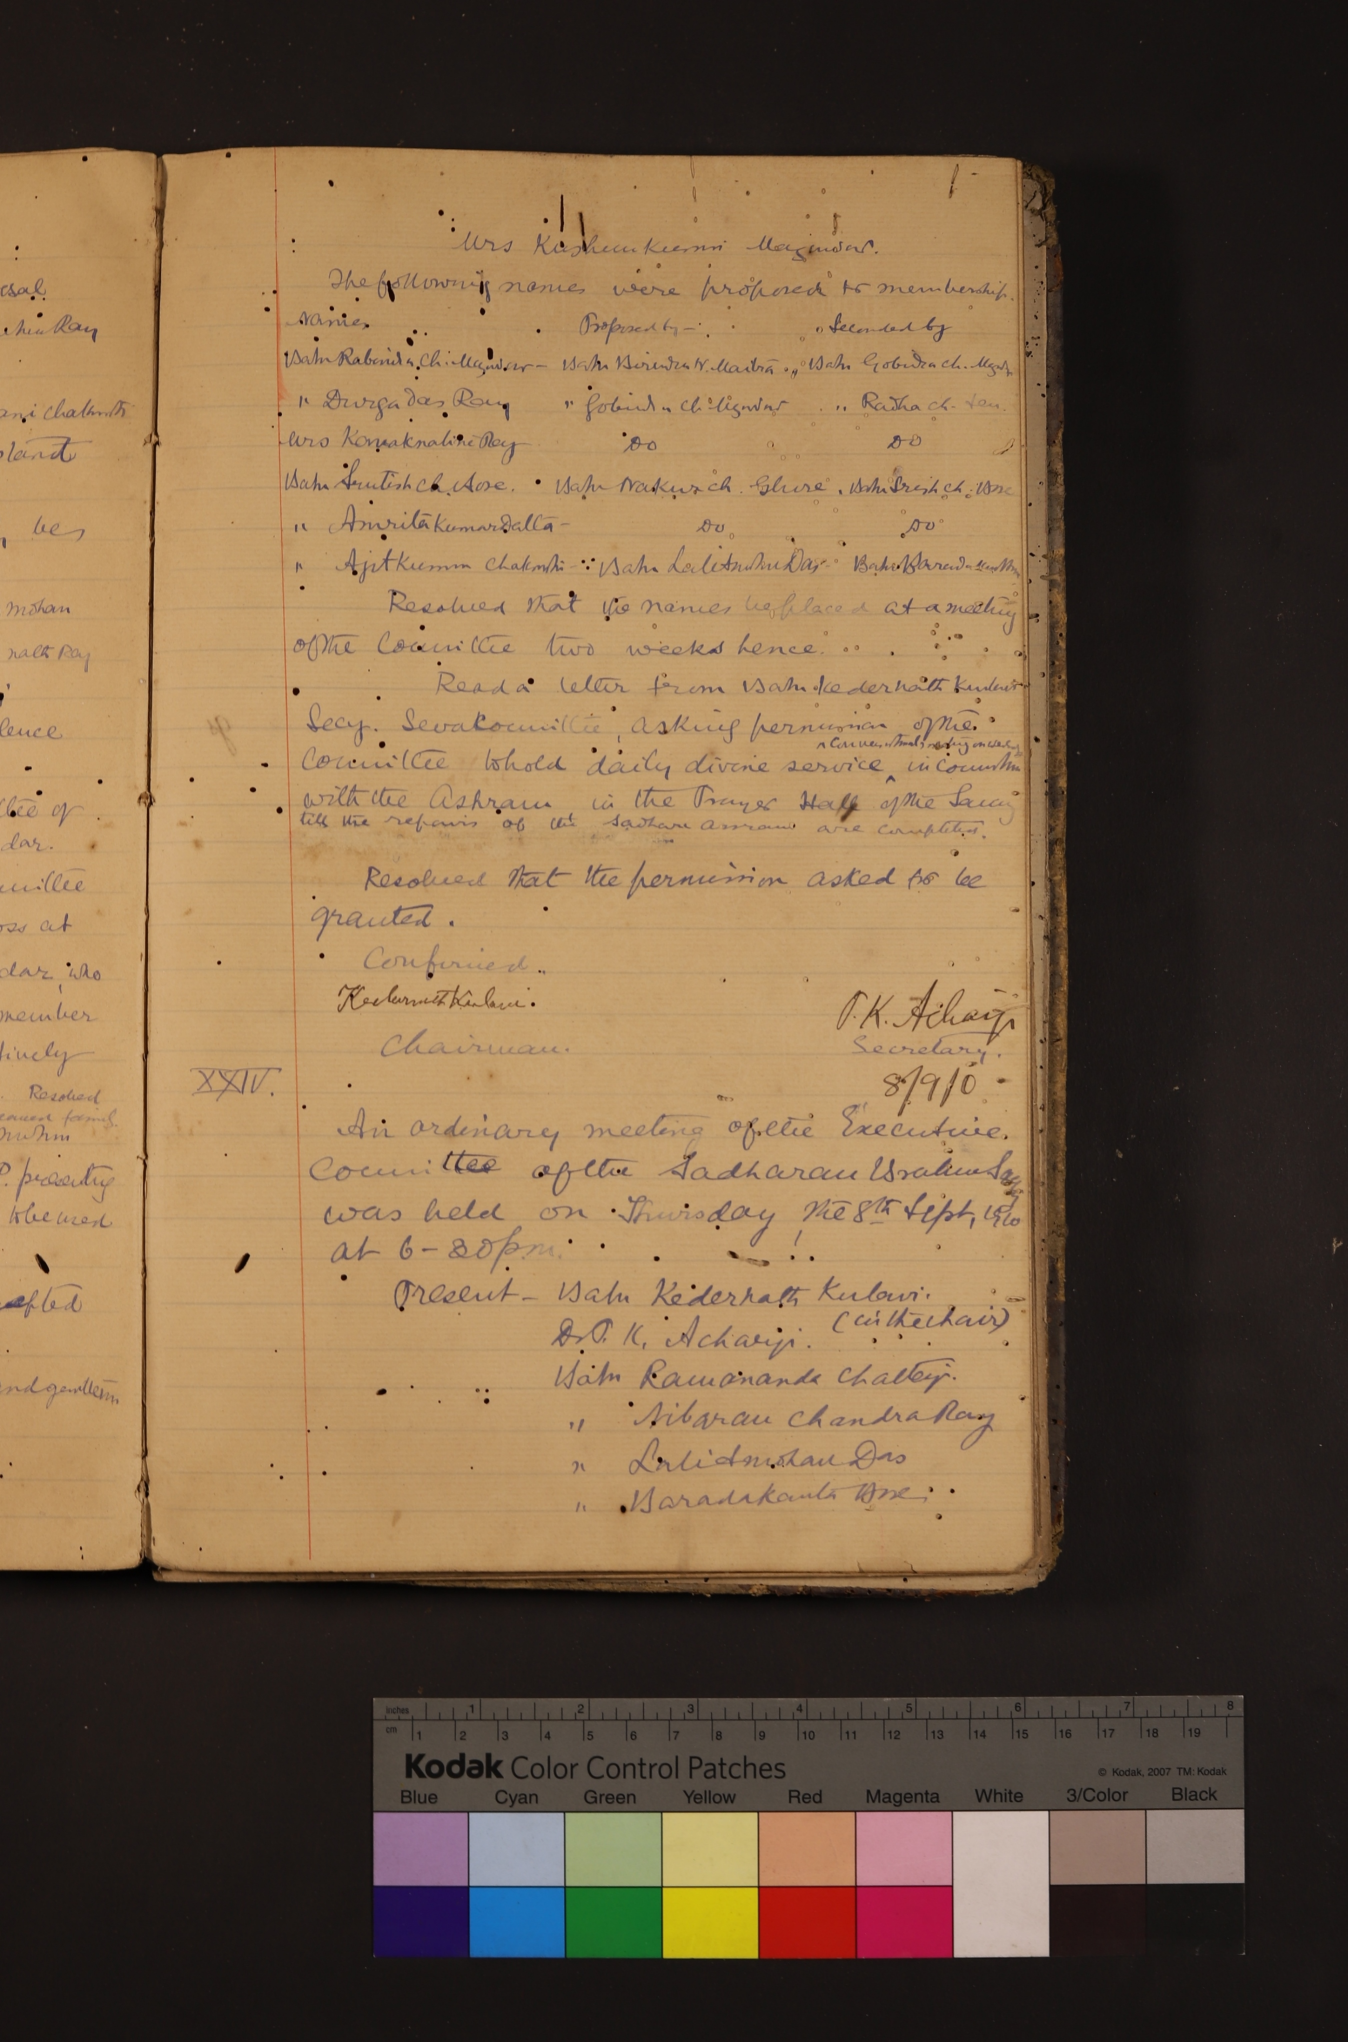 esal
Ray
ani Chakravarti
bes
mohan
nath Ray
lence
ttee of
dar.
mittee
oss at
dar, who
member
tively
Resolved
P. presenting
to be used
epted
and gentlemen
Mrs Kushumkumari Mazumdar.
The following names were proposed for membership.
Names Proposed by – Seconded by
Babu Rabindra Ch. Mazumdar – Babu Birendra N. Maitra " Babu Gobinda ch. Mazumdar
" Durgadas Ray " Gobinda Ch. Mazumdar " Radha ch. Sen
Mrs Kanaknalini Ray Do Do
Babu Ch. Bose. Babu Nakur ch. Ghose. Babu Srish ch. Bose
" Amrita Kumar Datta – Do Do
" Ajit Kumar Chakravarti – Babu Lalitmohan Das – Babu
Resolved that the names be placed at a meeting
of the Committee two weeks hence.
Read a letter from Babu Kedernath Kulavi
Secy. Seva Committee, asking permission of the
Committee to hold daily divine service in connection
with the Ashram in the Prayer Hall of the Samaj
till the repairs of the Sadhan Asram are completed.
Resolved that the permission asked for be
granted.
Confirmed.
Kedarnath Kulavi. P. K. Acharji
Chairman. Secretary.
XXIV. 8/9/10
An ordinary meeting of the Executive
Committee of the Sadharan Brahmo Samaj
was held on Thursday the 8th Sept, 1910
at 6-30 p.m.
Present – Babu Kedernath Kulavi.
(in the chair)
Dr P. K. Acharji.
Babu Ramananda Chatterji.
" Nibaran Chandra Ray
" Lalitmohan Das
" Baradakanta Bose
inches 1 2 3 4 5 6 7 8
cm 1 2 3 4 5 6 7 8 9 10 11 12 13 14 15 16 17 18 19
Kodak Color Control Patches © Kodak, 2007 TM: Kodak
Blue Cyan Green Yellow Red Magenta White 3/Color Black